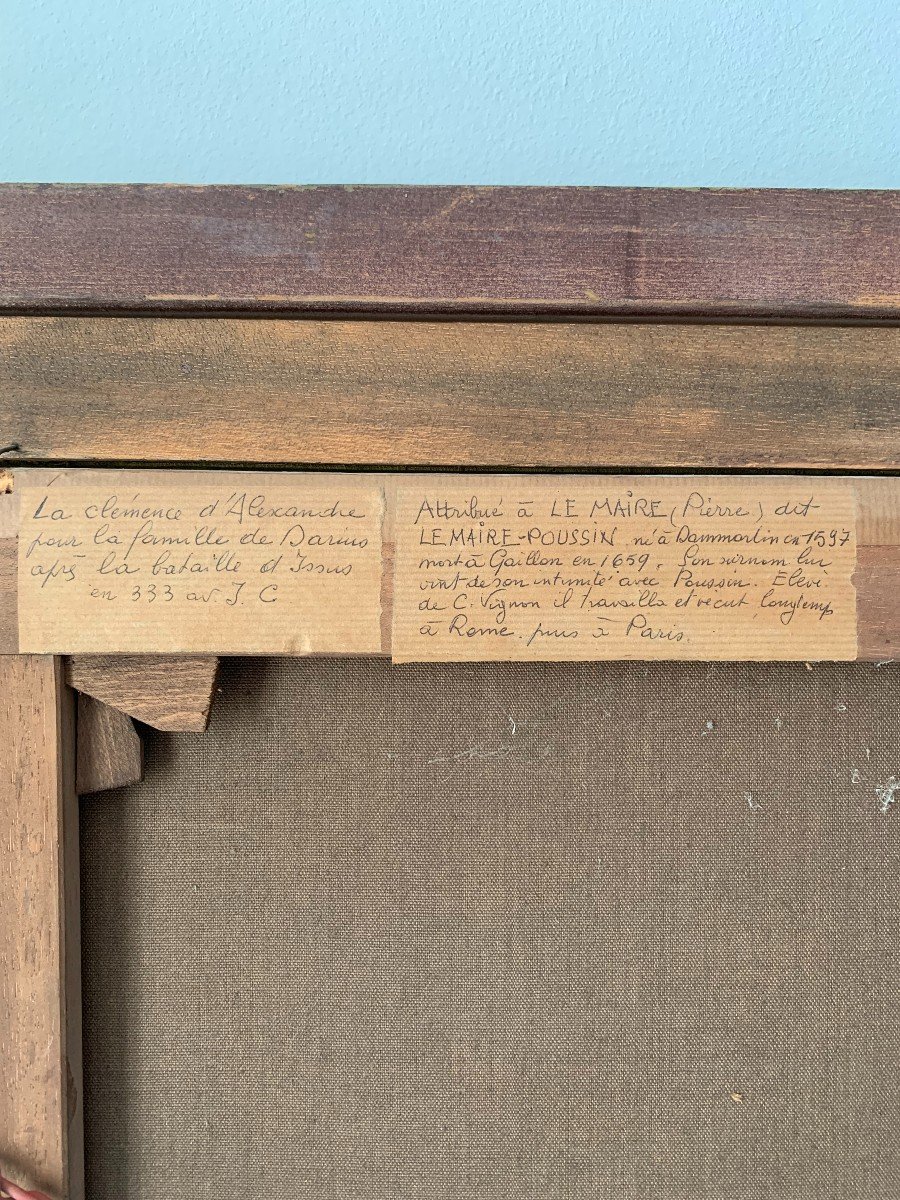 La clémence d'Alexandre
pour la famille de Darius
après la bataille d'Issus
en 333 av. J. C
Attribué à LE MAIRE (Pierre) dit
LEMAIRE-POUSSIN né à Dammartin en 1597
mort à Gaillon en 1659. Son surnom lui
vint de son intimité avec Poussin. Elève
de C. Vignon il travailla et vécut longtemp
à Rome. puis à Paris.